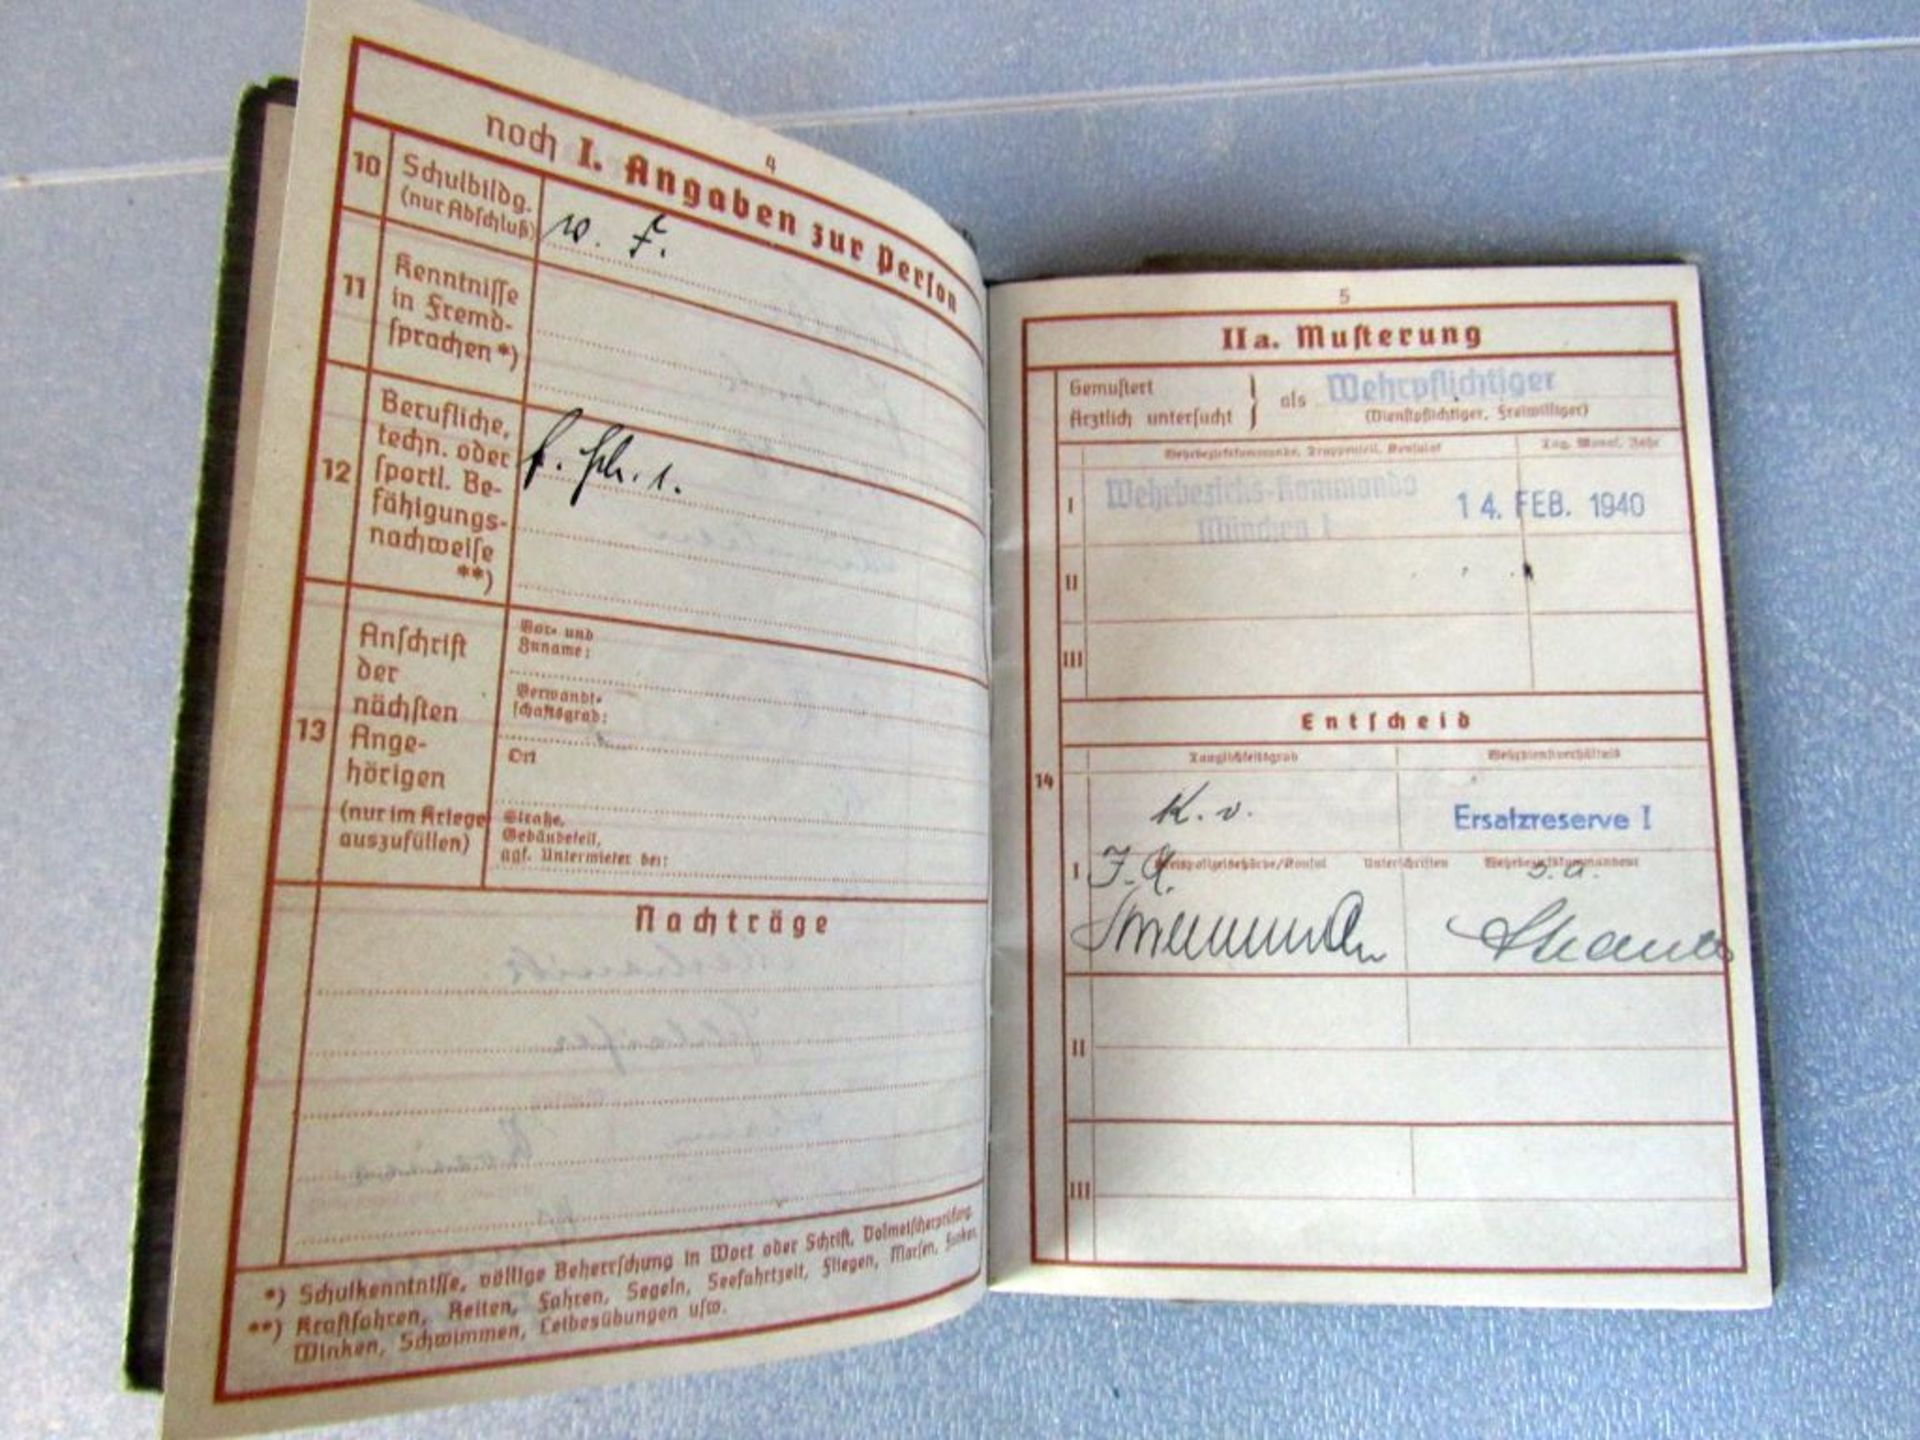 4
noch I. Angaben zur Person
10
Schulbildg.
(nur Abschluß)
w. F.
11
Kenntnisse
in Fremd-
sprachen *)
12
Berufliche,
techn. oder
sportl. Be-
fähigungs-
nachweise
**)
f. Sch. 1.
13
Anschrift
der
nächsten
Ange-
hörigen
(nur im Kriege
auszufüllen)
Vor- und
Zuname:
Verwandt-
schaftsgrad:
Ort
Straße,
Gebäudeteil,
ggf. Untermieter bei:
Nachträge
*) Schulkenntnisse, völlige Beherrschung in Wort oder Schrift, Dolmetscherprüfung.
**) Kraftfahren, Reiten, Fahren, Segeln, Seefahrtzeit, Fliegen, Morsen, Funken,
Winken, Schwimmen, Leibesübungen usw.
5
IIa. Musterung
Gemustert
Ärztlich untersucht } als Wehrpflichtiger
(Dienstpflichtiger, Freiwilliger)
Wehrbezirkskommando, Truppenteil, Konsulat
Tag, Monat, Jahr
I
Wehrbezirks-Kommando
München I
14. FEB. 1940
II
III
Entscheid
14
Tauglichkeitsgrad
Wehrdienstverhältnis
K. v.
Ersatzreserve I
I
Kreispolizeibehörde/Konsul
Unterschriften
Wehrbezirkskommandeur
J. A.
J. A.
II
III